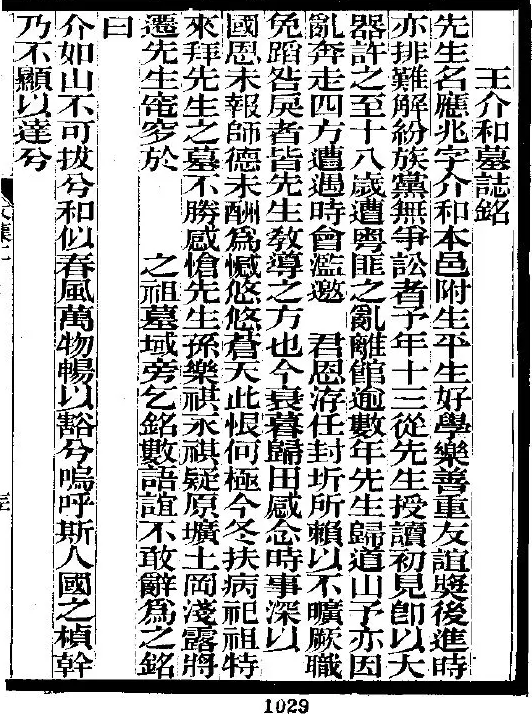 王介和墓誌銘
先生名應兆字介和本邑附生平生好學樂善重友誼奬後進時
亦排難解紛族黨無爭訟者予年十三從先生授讀初見卽以大
器許之至十八歲遭粵匪之亂離館逾數年先生歸道山予亦因
亂奔走四方遭遇時會濫邀　君恩洊任封圻所賴以不曠厥職
免蹈咎戾者皆先生敎導之方也今衰暮歸田感念時事深以
國恩未報師德未酬爲憾悠悠蒼天此恨何極今冬扶病祀祖特
來拜先生之墓不勝感愴先生孫樂祺永祺疑原壙土岡淺露將
遷先生窀穸於　　　之祖墓域旁乞銘數語誼不敢辭爲之銘
曰
介如山不可拔兮和似春風萬物暢以豁兮嗚呼斯人國之楨幹
乃不顯以達兮
1029